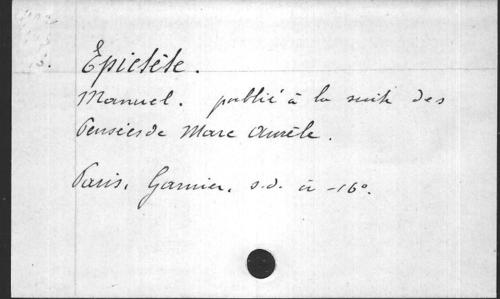 Épictète.
Manuel. publié à la suite des
Pensées de Marc Aurèle.
Paris, Garnier, s.d. in-16°.